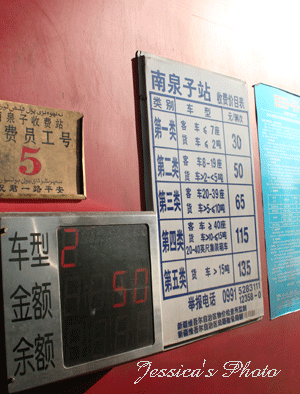 南泉子收费站
费员工号
5
祝君一路平安
车型 2
金额 90
余额
南泉子站 收费价目表
类别 车型 元/辆次
第一类 客车 ≤7座 30
货车 ≤2吨
第二类 客车 8-19座 50
货车 >2-≤5吨
第三类 客车 20-39座 65
货车 >5-≤10吨
第四类 客车 ≥40座 115
货车 >10-≤15吨
20-40英尺集装箱车
第五类 货车 >15吨 135
举报电话 0991 5283111
12358-0
新疆维吾尔自治区物价检查所监制
Jessica's Photo